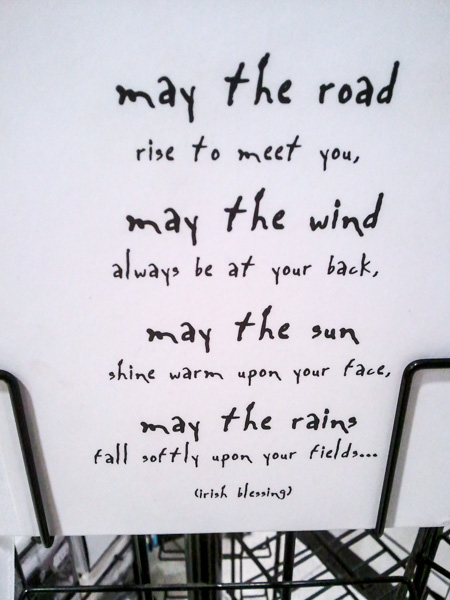 may the road
rise to meet you,
may the wind
always be at your back,
may the sun
shine warm upon your face,
may the rains
fall softly upon your fields...
(irish blessing)